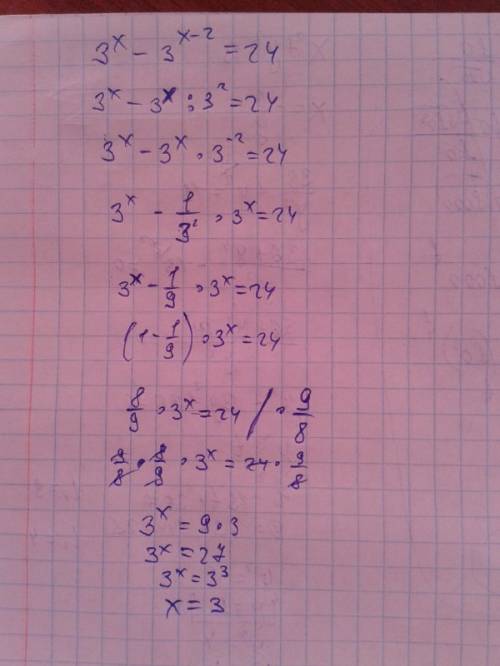 3^x - 3^(x-2) = 24
3^x - 3^x : 3^2 = 24
3^x - 3^x · 3^(-2) = 24
3^x - 1/3^2 · 3^x = 24
3^x - 1/9 · 3^x = 24
(1 - 1/9) · 3^x = 24
8/9 · 3^x = 24 / · 9/8
9/8 · 8/9 · 3^x = 24 · 9/8
3^x = 9 · 3
3^x = 27
3^x = 3^3
x = 3